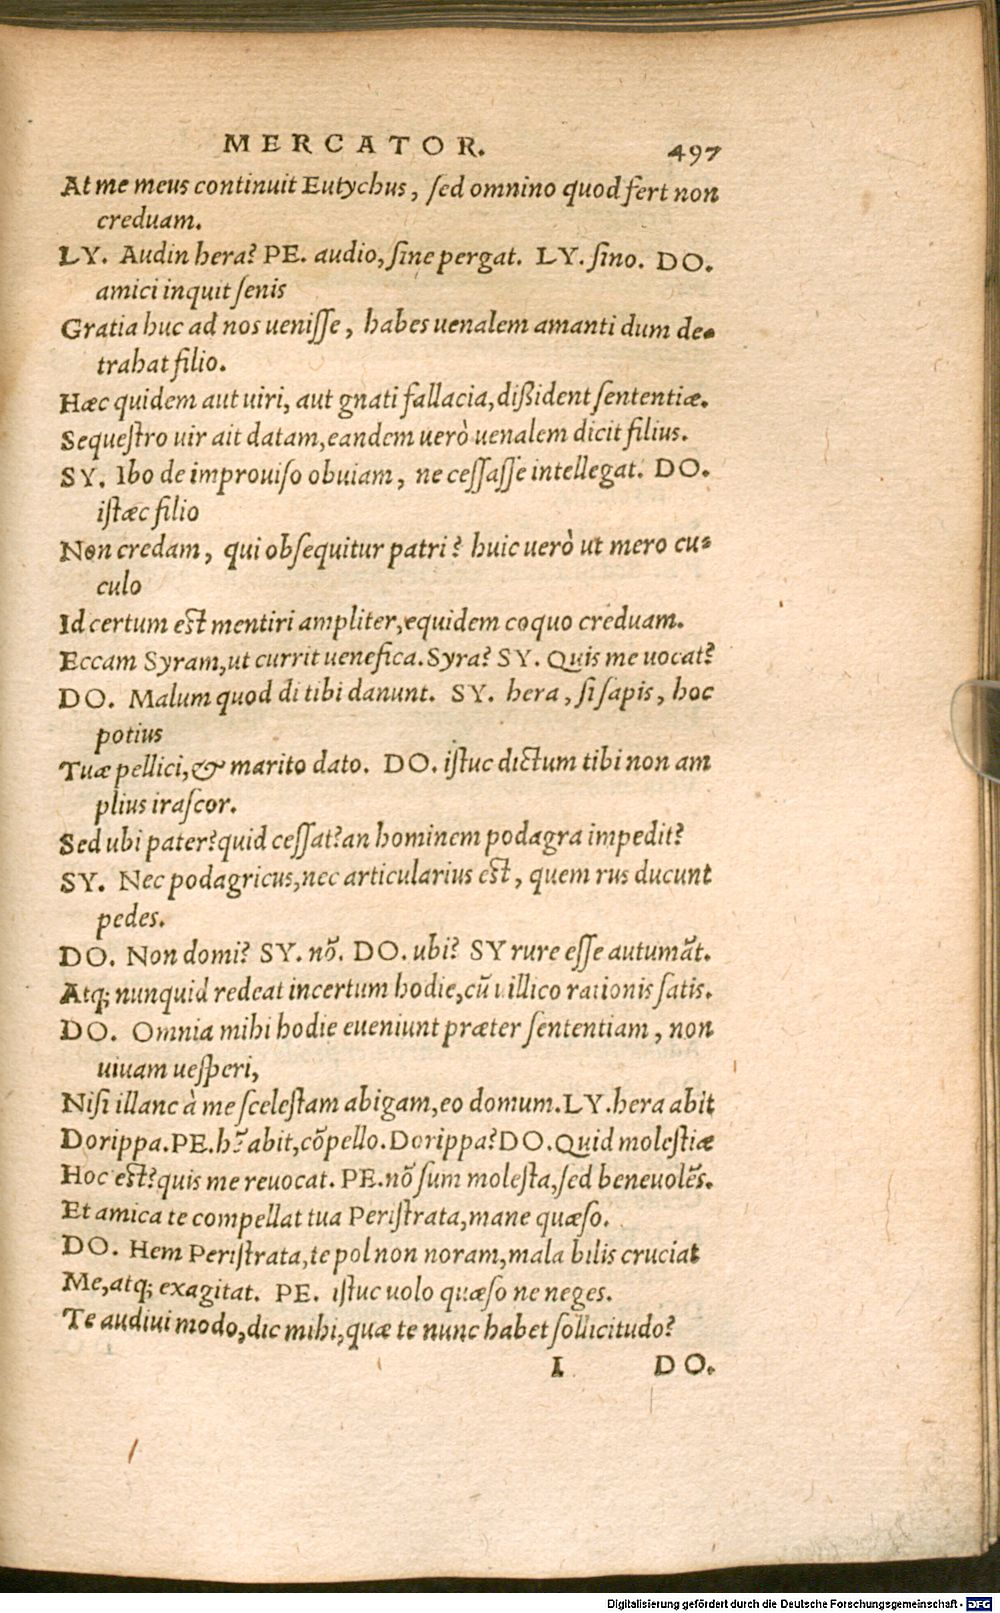 MERCATOR. 497
At me meus continuit Eutychus, sed omnino quod fert non
creduam.
LY. Audin hera? PE. audio, sine pergat. LY. sino. DO.
amici inquit senis
Gratia huc ad nos uenisse, habes uenalem amanti dum de-
trahat filio.
Hæc quidem aut uiri, aut gnati fallacia, dißident sententiæ.
Sequestro uir ait datam, eandem uerò uenalem dicit filius.
SY. Ibo de improuiso obuiam, ne cessasse intellegat. DO.
istæc filio
Non credam, qui obsequitur patri? huic uerò ut mero cu-
culo
Id certum est mentiri ampliter, equidem coquo creduam.
Eccam Syram, ut currit uenefica. Syra? SY. Quis me uocat?
DO. Malum quod di tibi danunt. SY. hera, si sapis, hoc
potius
Tuæ pellici, & marito dato. DO. istuc dictum tibi non am
plius irascor.
Sed ubi pater? quid cessat? an hominem podagra impedit?
SY. Nec podagricus, nec articularius est, quem rus ducunt
pedes.
DO. Non domi? SY. nõ. DO. ubi? SY rure esse autumãt.
Atq; nunquid redeat incertum hodie, cũ uillico rationis satis.
DO. Omnia mihi hodie eueniunt præter sententiam, non
uiuam uesperi,
Nisi illanc à me scelestam abigam, eo domum. LY. hera abit
Dorippa. PE. h̃ abit, cõpello. Dorippa? DO. Quid molestiæ
Hoc est? quis me reuocat. PE. nõ sum molesta, sed beneuolẽs.
Et amica te compellat tua Peristrata, mane quæso.
DO. Hem Peristrata, te pol non noram, mala bilis cruciat
Me, atq; exagitat. PE. istuc uolo quæso ne neges.
Te audiui modo, dic mihi, quæ te nunc habet sollicitudo?
I DO.
Digitalisierung gefördert durch die Deutsche Forschungsgemeinschaft - DFG